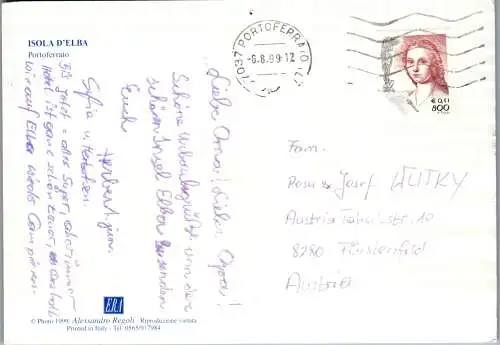 ISOLA D'ELBA
Portoferraio
57037 PORTOFERRAIO (LI)
-6.8.99-12
€ 0,41
800
Liebe Oma! Lieber Opa!
Schöne Urlaubsgrüße von der
schönen Insel Elba senden
Euch
Herbert jun.
Sylvia u. Herbert sen.
Bis jetzt = alles Super, das Zimmer
Hotel ist ganz schön teuer, deshalb
wir auf Elba
Fam.
Rosa u. Josef WUTKY
Austria Tabakstr. 10
8280 Fürstenfeld
Austria
ERA
© Photo 1999 Alessandro Regoli - Riproduzione vietata
Printed in Italy - Tel. 0565/917984